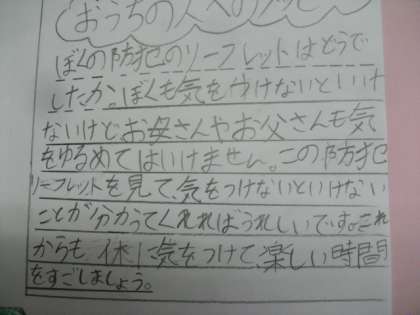 おうちの人へのメッセ
ぼくの防犯のリーフレットはどうで
したか。ぼくも気をつけないといけ
ないけどお母さんやお父さんも気
をゆるめてはいけません。この防犯
リーフレットを見て、気をつけないといけない
ことが分かってくれればうれしいです。これ
からも 体に気をつけて、楽しい時間
をすごしましょう。